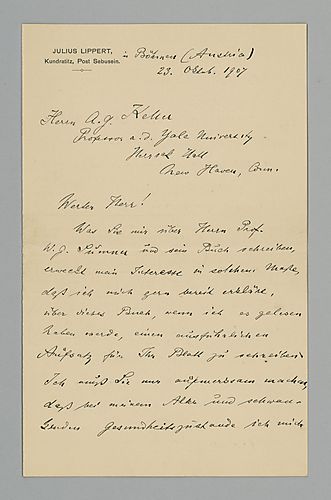 JULIUS LIPPERT,
Kundratitz, Post Sebusein.
in Böhmen (Austria)
23. Oktob. 1907
Herrn A. G. Keller
Professor a. d. Yale University
Hall
New Haven, Conn.
Werter Herr!
Was Sie mir über Herrn Prof.
W. G. Sumner und sein Buch schreiben,
erweckt mein Interesse in solchem Maße,
daß ich mich gern bereit erkläre,
über dieses Buch, wenn ich es gelesen
haben werde, einen ausführlichen
Aufsatz für Ihr Blatt zu schreiben.
Ich muß Sie nur aufmerksam machen,
daß bei meinem Alter und schwan-
kenden Gesundheitszustande ich mich